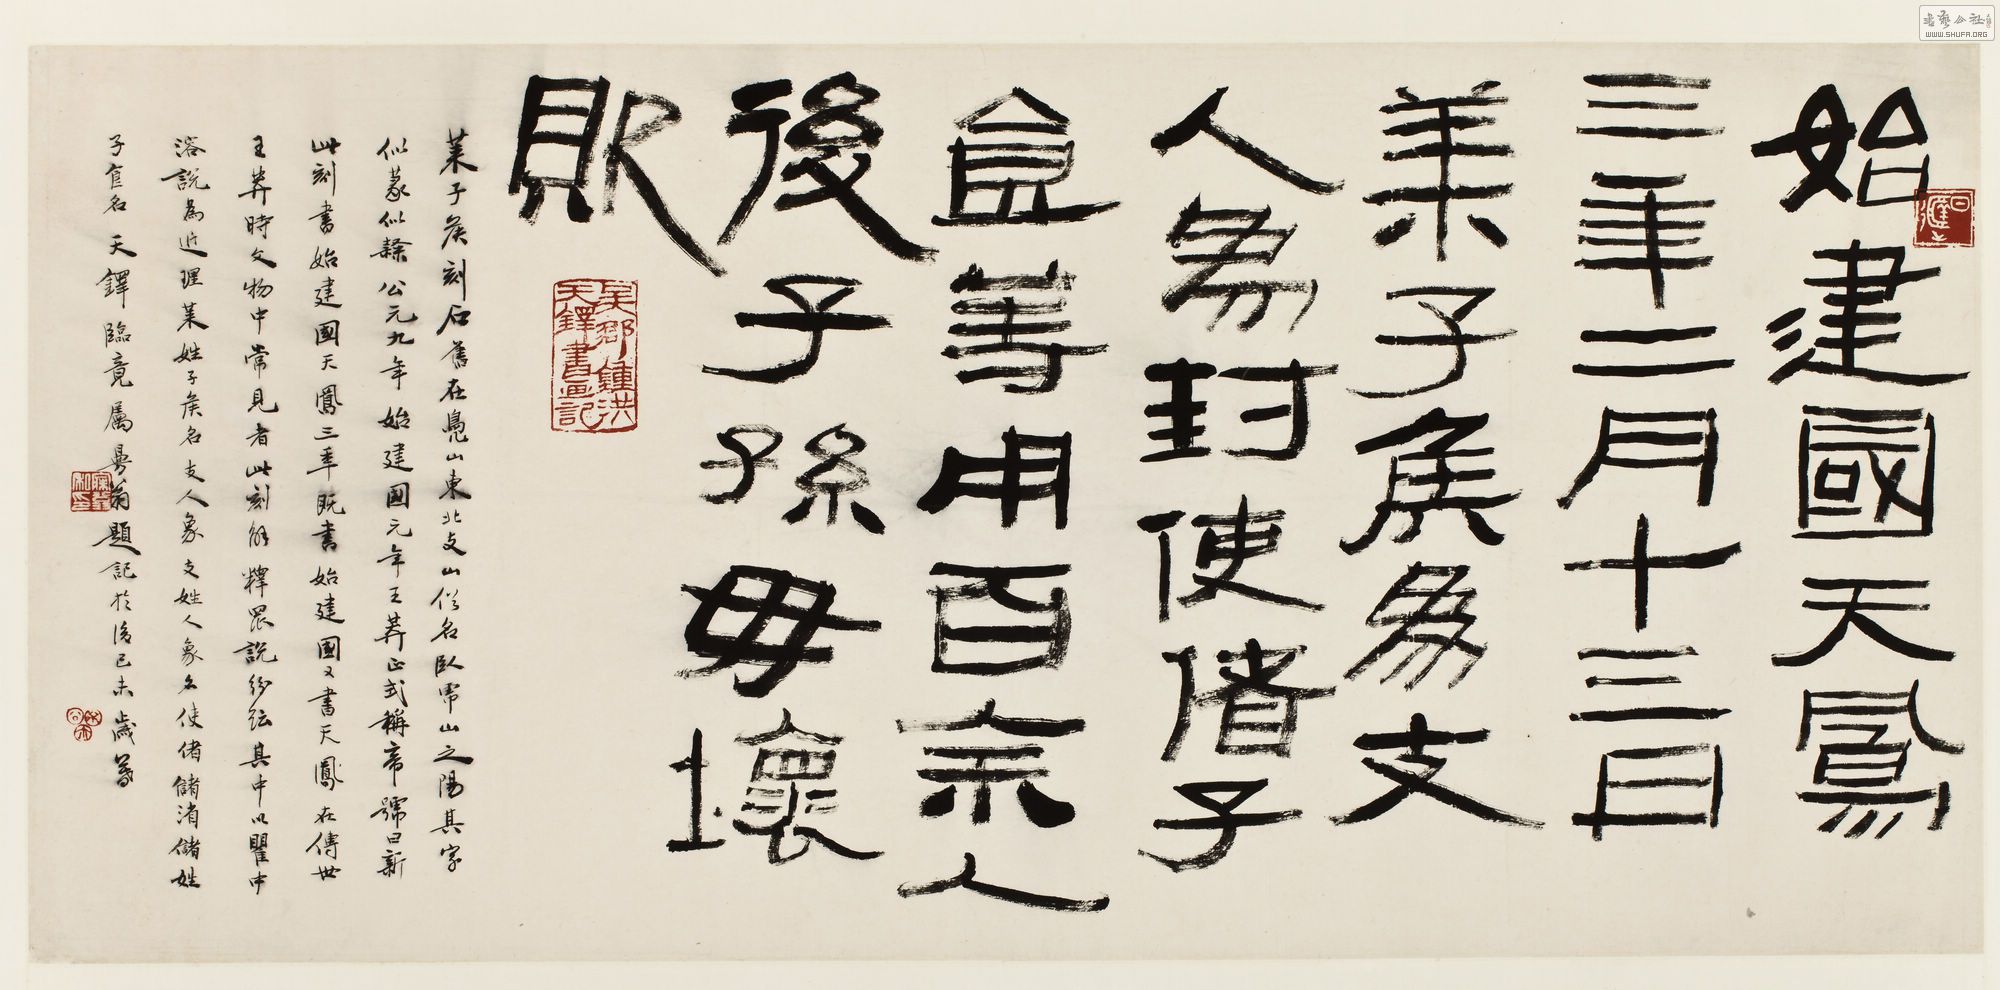 始建國天鳳
三年二月十三日
莱子矦為支
人為封使偖子
食等用百余人
後子孫毋壞
敗
吴郡鍾洪
天鐸書画記
莱子矦刻石舊在鳧山東北支山俗名臥帶山之陽其字
似篆似隸公元九年始建國元年王莽正式稱帝號曰新
此刻書始建國天鳳三年既書始建國又書天鳳在傳世
王莽時文物中常見者此刻解釋眾說紛紜其中以瞿中
溶說為近理莱姓子矦名支人象支姓人象名使偖儲渚儲姓
子食名 天鐸臨竟属曼翁題記於後己未歲暮
書藝公社
WWW.SHUFA.ORG